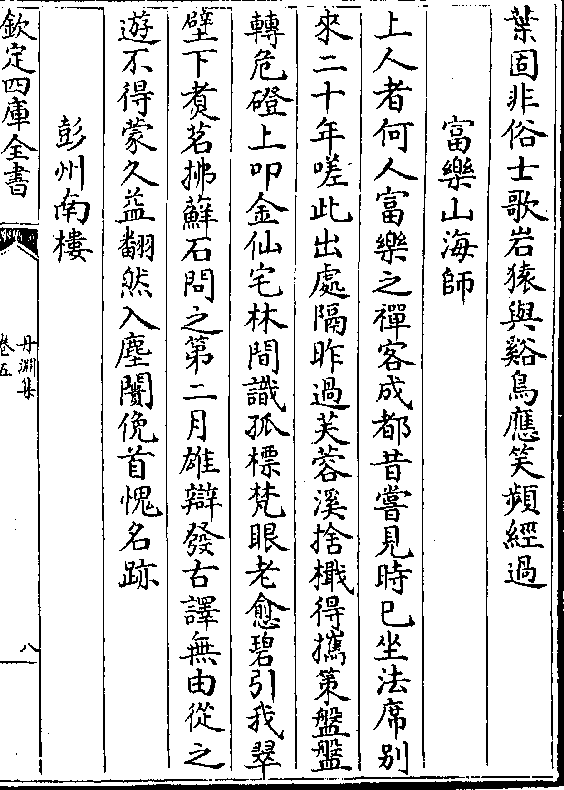 葉固非俗士歌岩猿與谿鳥應笑頻經過
富樂山海師
上人者何人富樂之禪客成都昔嘗見時已坐法席别
來二十年嗟此出處隔昨過芙蓉溪捨檝得攜策盤盤
轉危磴上叩金仙宅林間識孤標梵眼老愈碧引我翠
壁下煑茗拂蘚石問之第二月雄辯發古譯無由從之
遊不得蒙久益翻然入塵闠俛首愧名跡
彭州南樓
欽定四庫全書
丹淵集
卷五
八